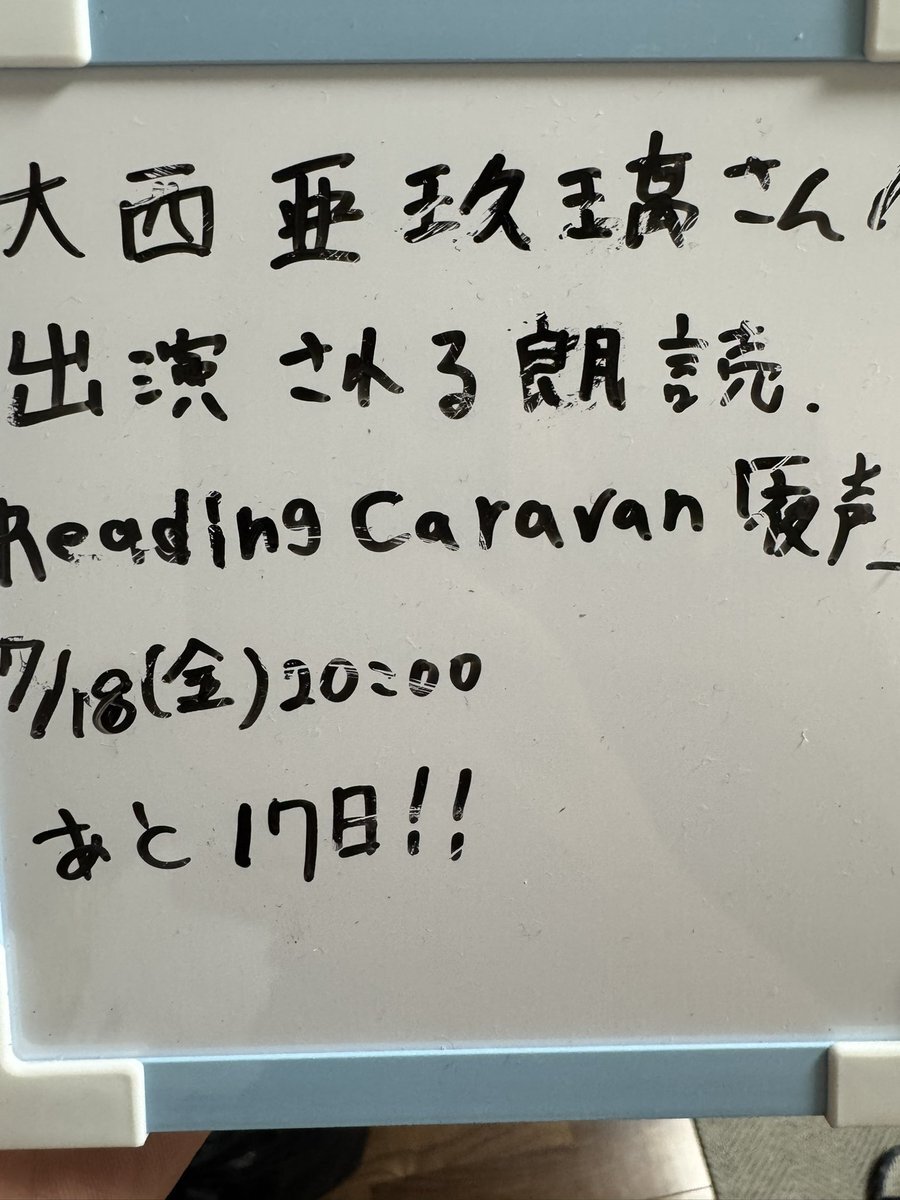 大西亜玖璃さんの
出演される朗読.
Reading Caravan
7/18(金)20:00
あと17日!!